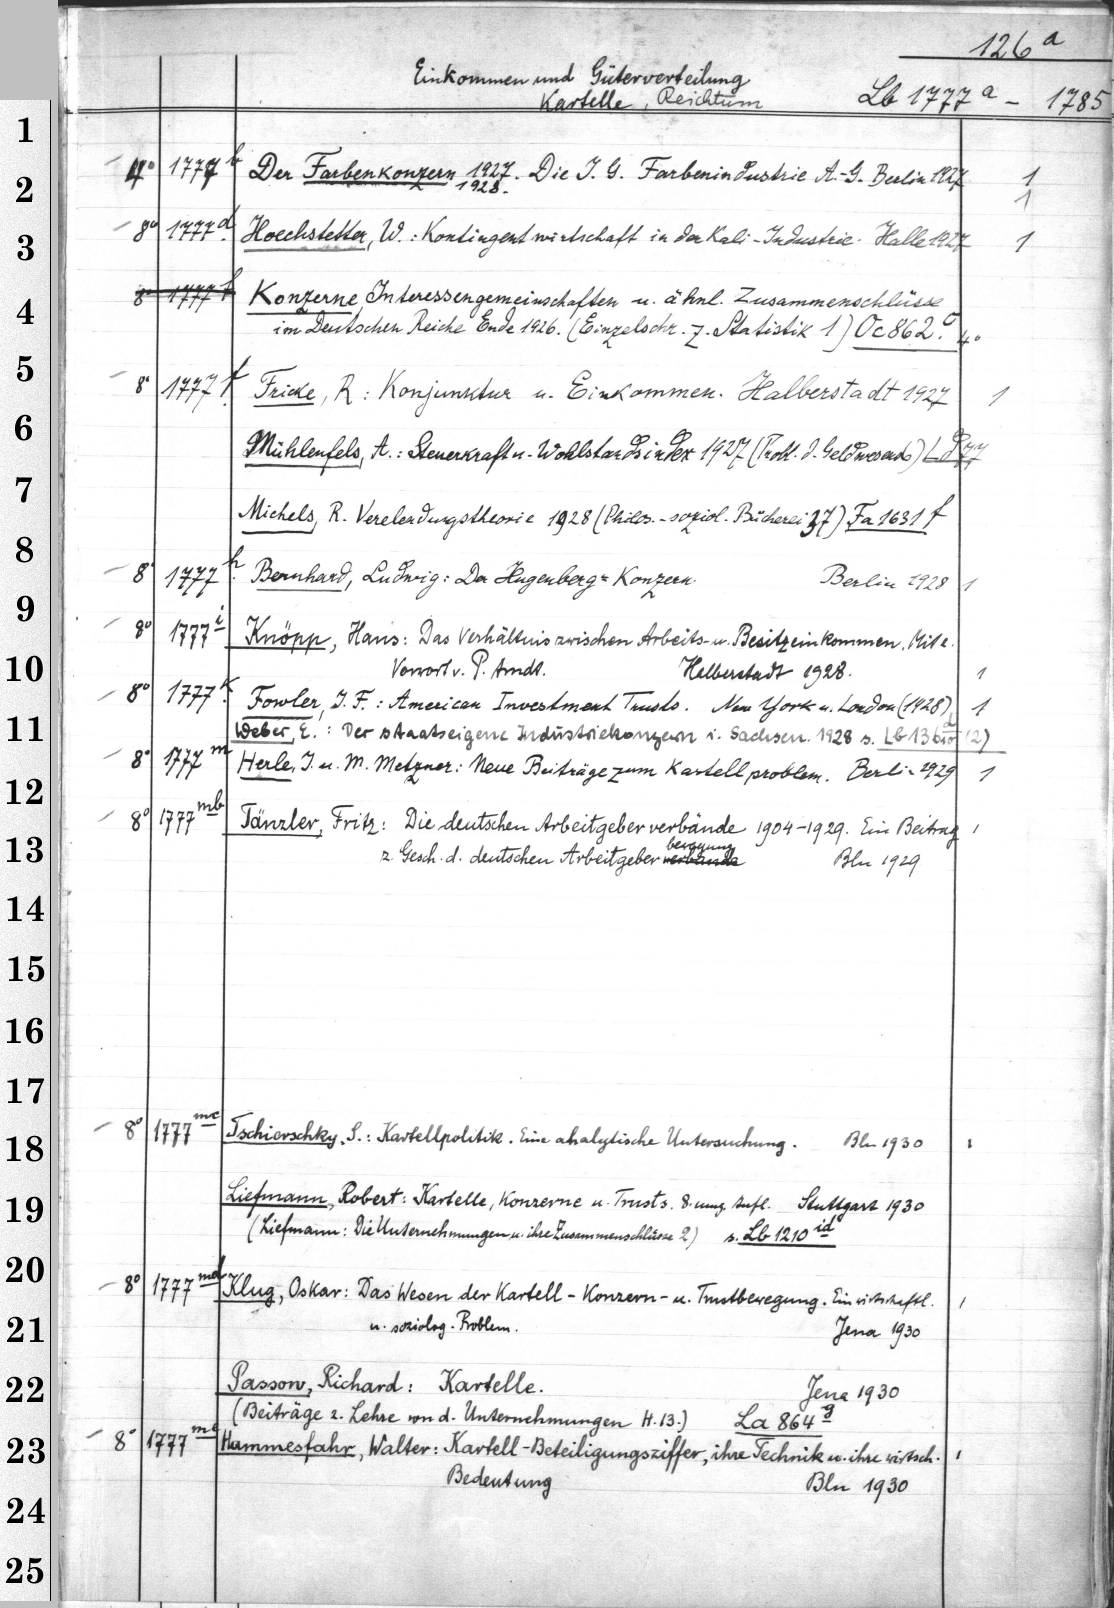 126 a
Einkommen und Güterverteilung
Kartelle, Reichtum Lb 1777 a - 1785
1
2
3
4
5
6
7
8
9
10
11
12
13
14
15
16
17
18
19
20
21
22
23
24
25
4° 1777 b Der Farbenkonzern 1927. Die I. G. Farbenindustrie A.-G. Berlin 1927 1
1928. 1
8° 1777 d Hoechstetter, W.: Kontingentwirtschaft in der Kali-Industrie. Halle 1927 1
8° 1777 f Konzerne Interessengemeinschaften u. ähnl. Zusammenschlüsse
im Deutschen Reiche Ende 1926. (Einzelschr. z. Statistik 1) Oc 862. c 4°
8° 1777 f Fricke, R: Konjunktur u. Einkommen. Halberstadt 1927 1
Mühlenfels, A.: Steuerkraft u. Wohlstandsindex 1927 (Probl. d. Geldwesens 6)
Michels, R. Verelendungstheorie 1928 (Philos.-soziol. Bücherei 37) Fa 1631 f
8° 1777 h Bernhard, Ludwig: Der Hugenberg=Konzern. Berlin 1928 1
8° 1777 i Knöpp, Hans: Das Verhältnis zwischen Arbeits- u. Besitzeinkommen. Mit e.
Vorwort v. P. Arndt. Halberstadt 1928. 1
8° 1777 k Fowler, J. F.: American Investment Trusts. New York u. London (1928) 1
Weber, E.: Der staatseigene Industriekonzern i. Sachsen. 1928 s.
8° 1777 m Herle, J. u. M. Metzner: Neue Beiträge zum Kartellproblem. Berlin 1929 1
8° 1777 mb Tänzler, Fritz: Die deutschen Arbeitgeberverbände 1904-1929. Ein Beitrag 1
z. Gesch. d. deutschen Arbeitgeber verbände bewegung Bln 1929
8° 1777 mc Tschierschky, S.: Kartellpolitik. Eine analytische Untersuchung. Bln 1930 1
Liefmann, Robert: Kartelle, Konzerne u. Trusts. 8. umg. Aufl. Stuttgart 1930
(Liefmann: Die Unternehmungen u. ihre Zusammenschlüsse 2) s. Lb 1210 id
8° 1777 md Klug, Oskar: Das Wesen der Kartell- Konzern- u. Trustbewegung. Ein wirtschaftl. 1
u. soziolog. Problem. Jena 1930
Passow, Richard: Kartelle. Jena 1930
(Beiträge z. Lehre von d. Unternehmungen H. 13.) La 864 g
8° 1777 me Hummesfahr, Walter: Kartell-Beteiligungsziffer, ihre Technik u. ihre wirtsch. 1
Bedeutung Bln 1930